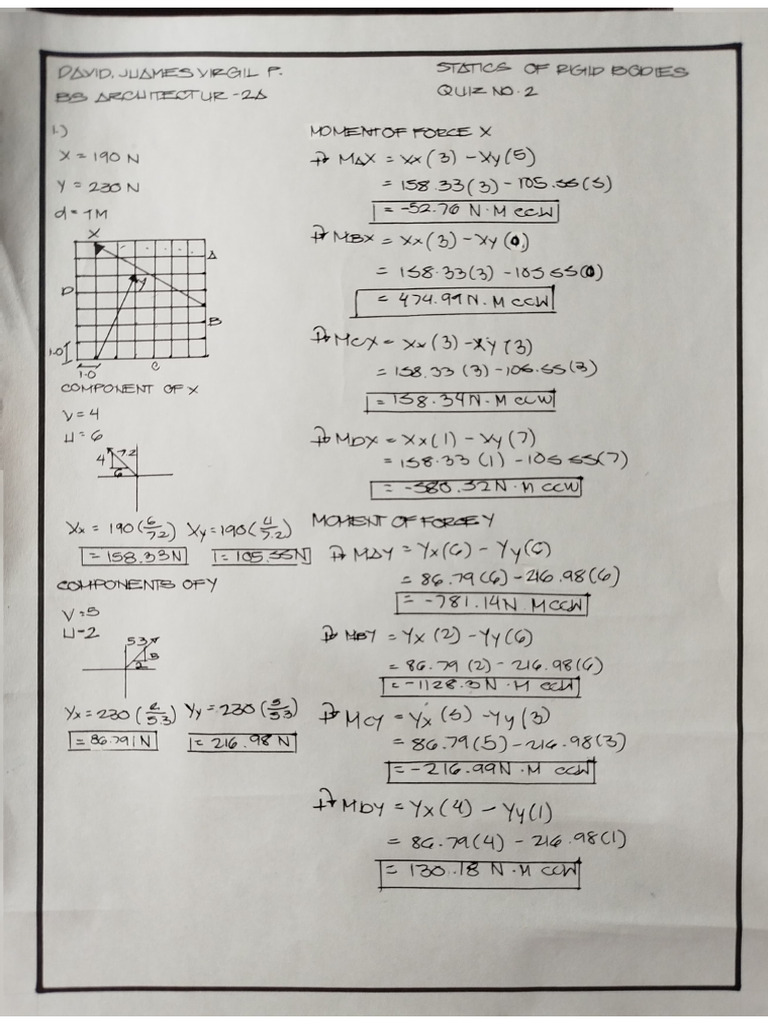 DAVID, JUAMES VIRGIL P.
BS ARCHITECTUR - 2A
STATICS OF RIGID BODIES
QUIZ NO. 2
1.)
X = 190 N
Y = 230 N
d = 1M
X
A
D
Y
B
1.0
1.0
C
COMPONENT OF X
V = 4
H = 6
4 7.2
6
Xx = 190 (6/7.2) Xy = 190 (4/7.2)
= 158.33 N = 105.55 N
COMPONENTS OF Y
V = 5
H = 2
5.3
5
2
Yx = 230 (2/5.3) Yy = 230 (5/5.3)
= 86.791 N = 216.98 N
MOMENT OF FORCE X
MAX = Xx (3) - Xy (5)
= 158.33 (3) - 105.55 (5)
= -52.76 N·M CCW
MBX = Xx (3) - Xy (0)
= 158.33 (3) - 105 55 (0)
= 474.99 N·M CCW
MCX = Xx (3) - Xy (3)
= 158.33 (3) - 105.55 (3)
= 158.34 N·M CCW
MDX = Xx (1) - Xy (7)
= 158.33 (1) - 105 55 (7)
= -580.52 N·M CCW
MOMENT OF FORCE Y
MAY = Yx (6) - Yy (6)
= 86.79 (6) - 216.98 (6)
= -781.14 N·M CCW
MBY = Yx (2) - Yy (6)
= 86.79 (2) - 216.98 (6)
= -1128.3 N·M CCW
MCY = Yx (5) - Yy (3)
= 86.79 (5) - 216.98 (3)
= -216.99 N·M CCW
MDY = Yx (4) - Yy (1)
= 86.79 (4) - 216.98 (1)
= 130.18 N·M CCW